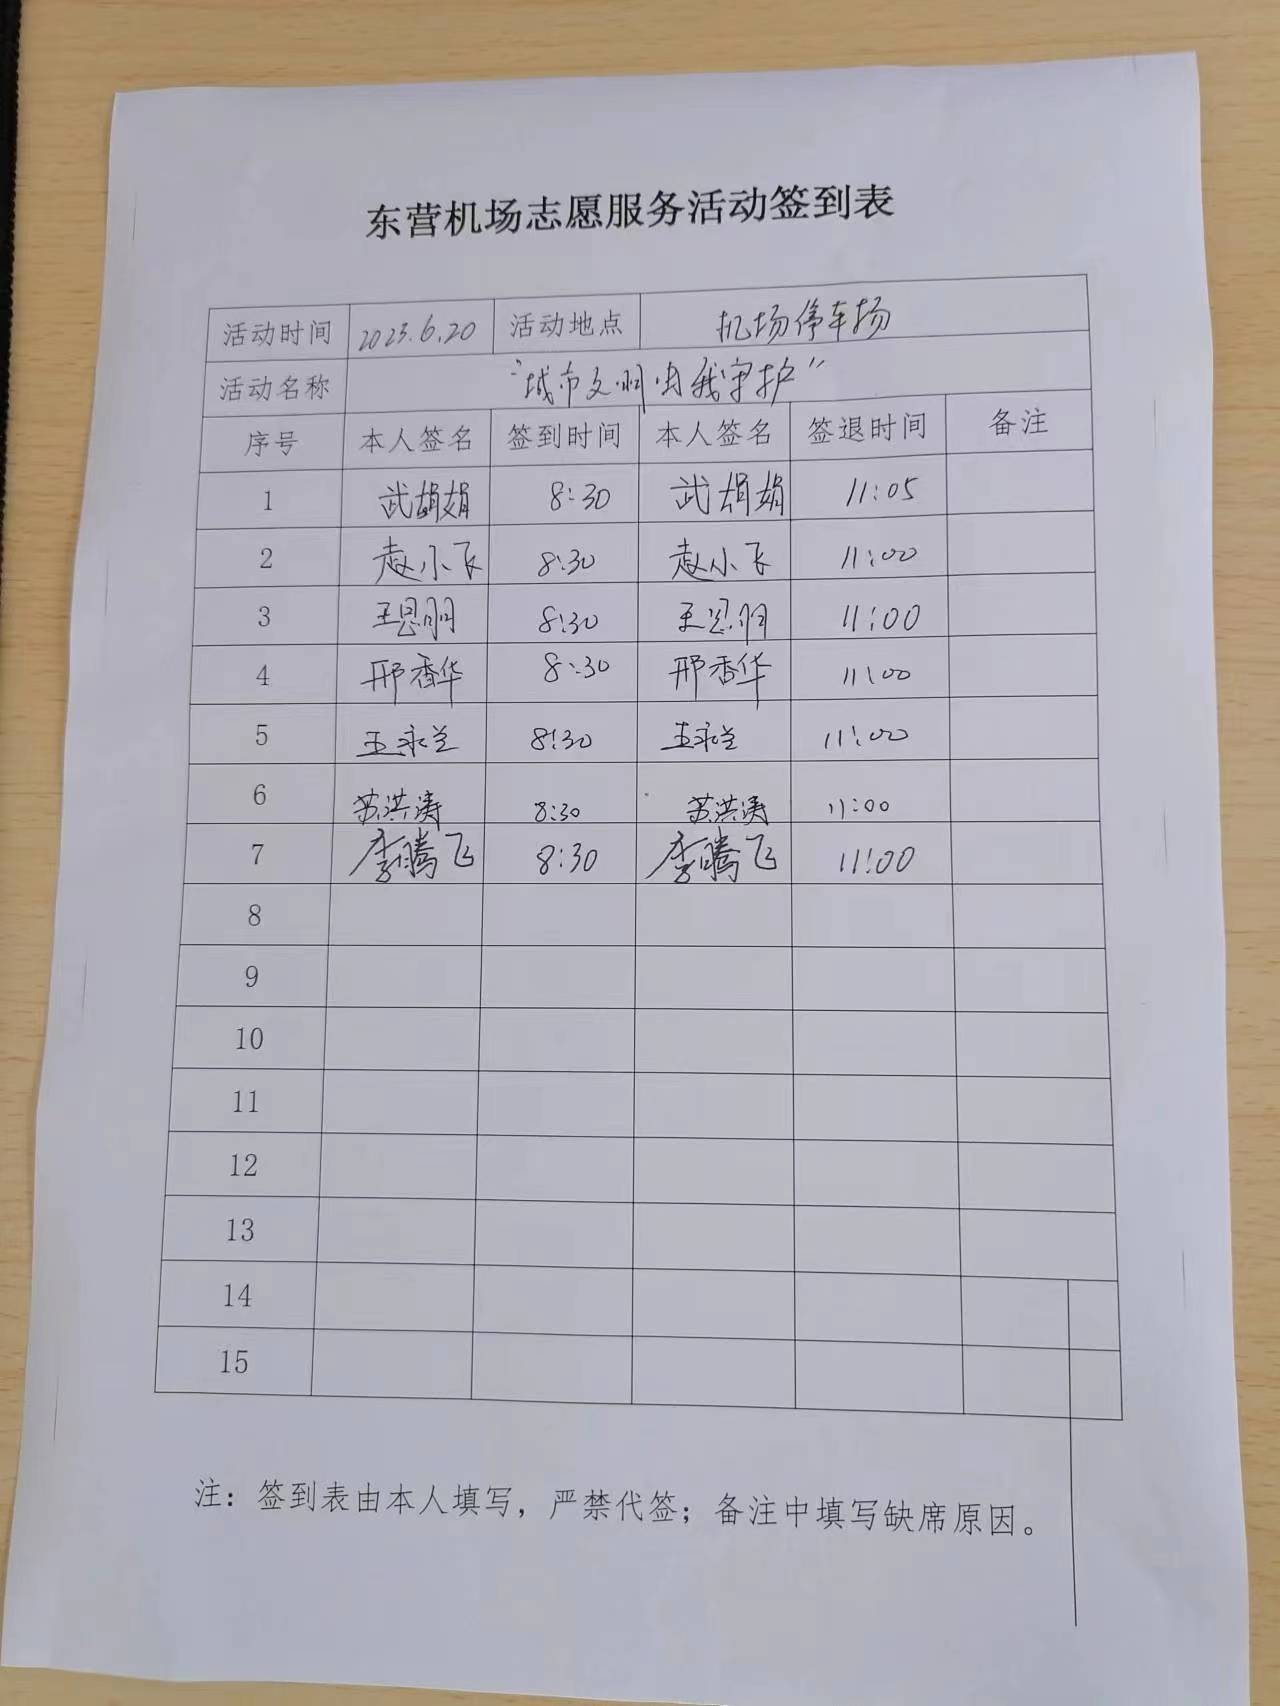 东营机场志愿服务活动签到表
活动时间 2023.6.20 活动地点 机场停车场
活动名称 "城市文明由我守护"
序号 本人签名 签到时间 本人签名 签退时间 备注
1 武娟娟 8:30 武娟娟 11:05
2 赵小飞 8:30 赵小飞 11:00
3 王恩明 8:30 王恩明 11:00
4 邢香华 8:30 邢香华 11:00
5 王永兰 8:30 王永兰 11:00
6 苏洪涛 8:30 苏洪涛 11:00
7 李腾飞 8:30 李腾飞 11:00
8
9
10
11
12
13
14
15
注：签到表由本人填写，严禁代签；备注中填写缺席原因。